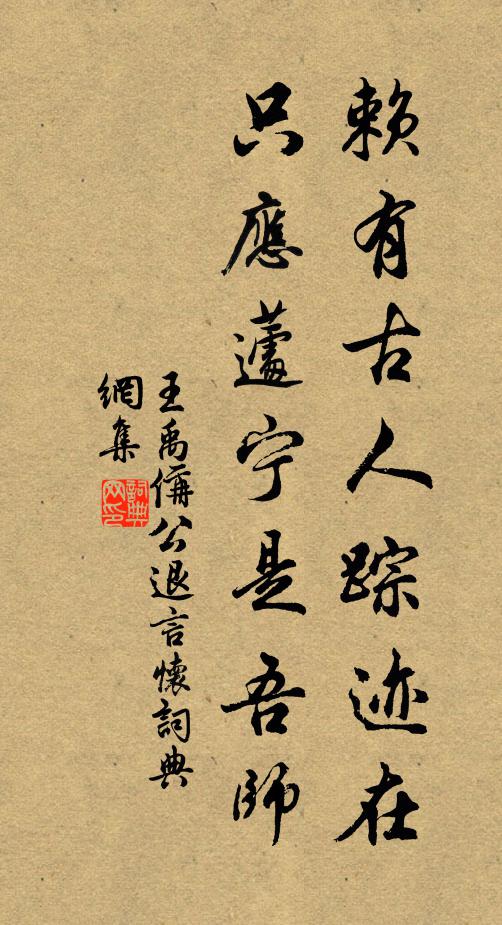 赖有古人踪迹在
只應蘧宁是吾師
王禹偁公退言懷詞典
網集
詞典
网印